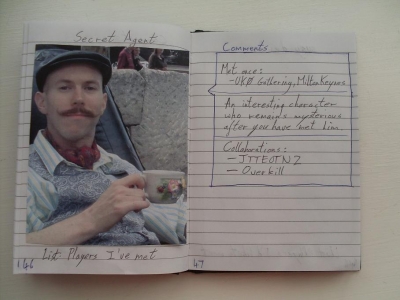 Secret Agent
List Players I've met
146
Comments
Met once:
-UKØ Gathering, Milton Keynes
An interesting character
who remains mysterious
after you have met him.
Collaborations:
- JTTEOTNZ
- Overkill
47